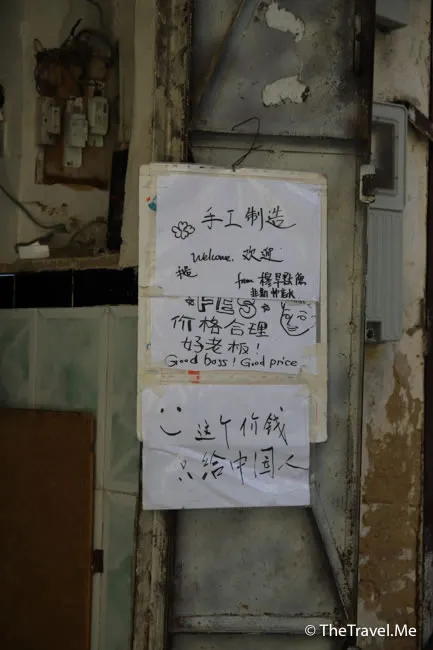 手工制造
Welcome. 欢迎
from
FES
价格合理
好老板!
Good boss! Good price
这个价钱
只给中国人
© TheTravel.Me